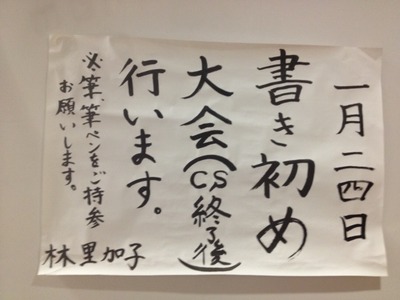 一月二四日
書き初め
大会(CS終了後)
行います。
※筆、筆ペンをご持参
お願いします。
林里加子